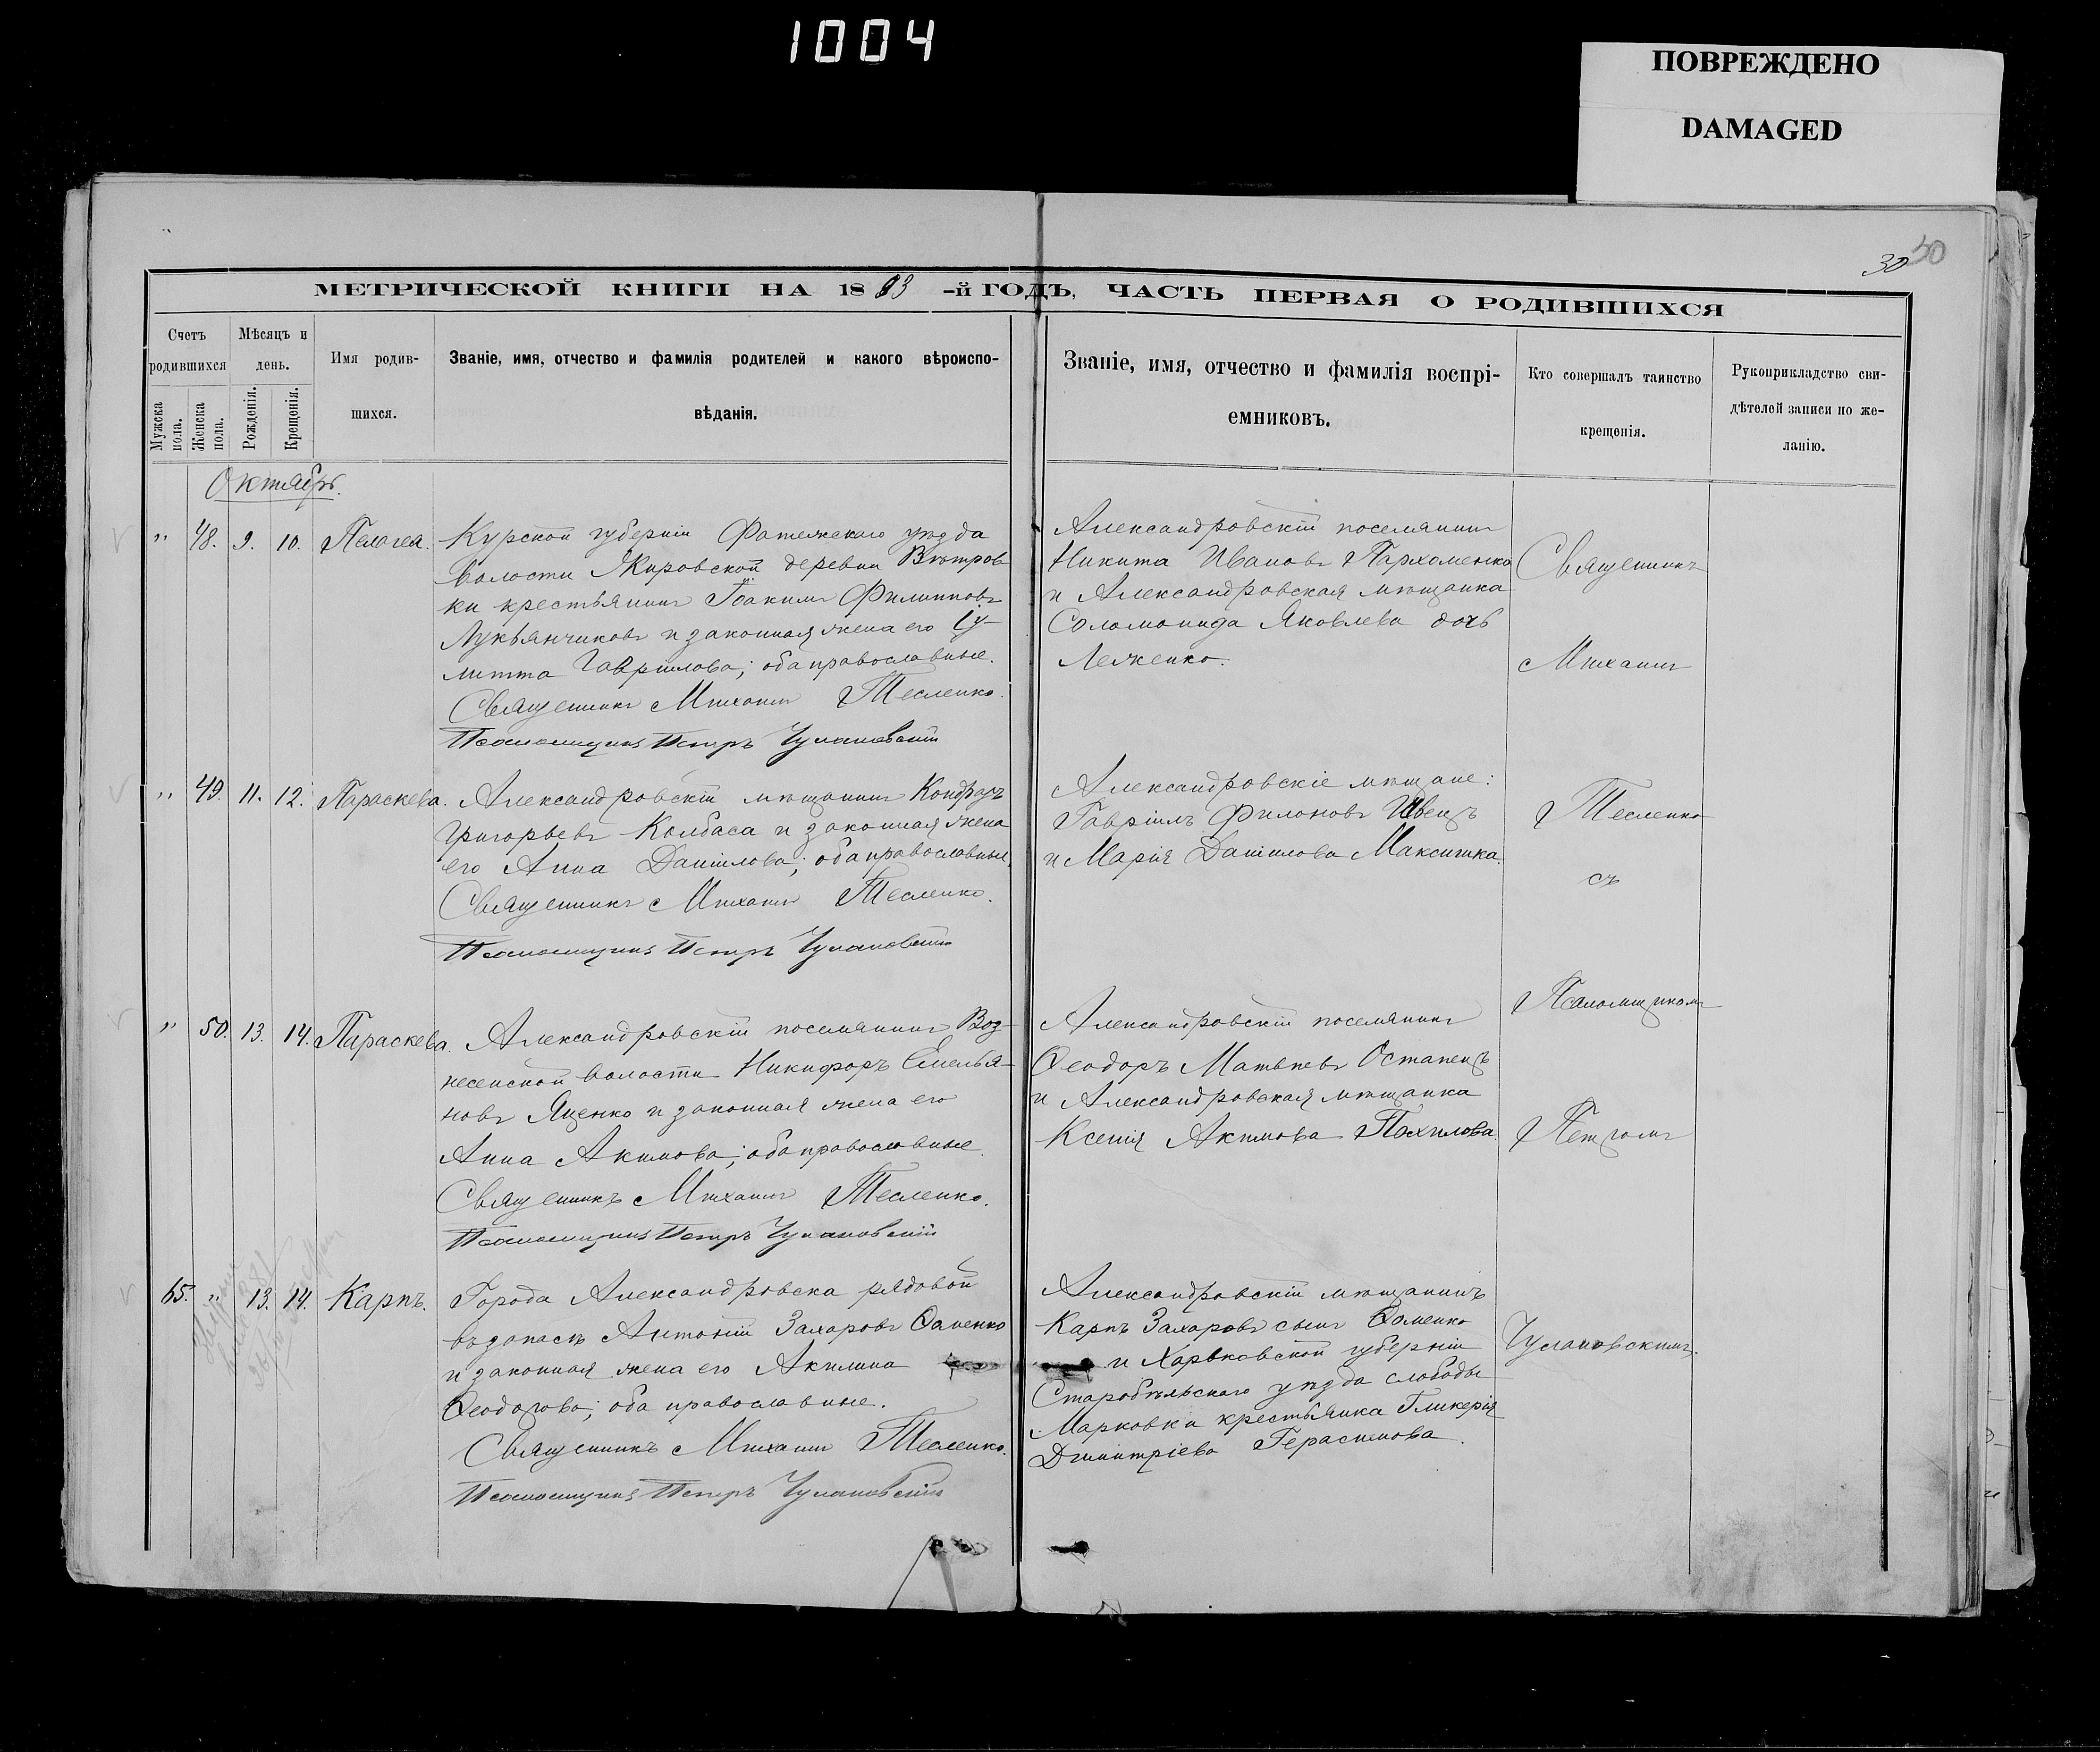 1004
ПОВРЕЖДЕНО
DAMAGED
30 30
МЕТРИЧЕСКОЙ КНИГИ НА 1883 -й ГОДЪ, ЧАСТЬ ПЕРВАЯ О РОДИВШИХСЯ
Счетъ родившихся
Мужска пола.
Женска пола.
Мѣсяцъ и день.
Рожденія.
Крещенія.
Имя родив-
шихся.
Званіе, имя, отчество и фамилія родителей и какого вѣроиспо-
вѣданія.
Званіе, имя, отчество и фамилія воспрі-
емниковъ.
Кто совершалъ таинство
крещенія.
Рукоприкладство сви-
дѣтелей записи по же-
ланію.
Октябрь.
" 48. 9. 10. Пелагея.
Курской губерніи Фатежскаго уѣзда
волости Жировской деревни Вѣтров
ки крестьянинъ Іоакимъ Филипповъ
Лукьянчиковъ и законная жена его Іу-
литта Гаврилова; оба православные.
Священникъ Михаилъ Тесленко.
Псаломщикъ Петръ Чулановскій
Александровскій поселянинъ
Никита Ивановъ Пархоменко
и Александровская мѣщанка
Соломонида Яковлева дочь
Леженко.
" 49. 11. 12. Параскева.
Александровскій мѣщанинъ Кондратъ
Григорьевъ Колбаса и законная жена
его Анна Даніилова; оба православные.
Священникъ Михаилъ Тесленко.
Псаломщикъ Петръ Чулановскій
Александровскіе мѣщане:
Гавріилъ Филоновъ Швецъ
и Марія Даніилова Максимка.
" 50. 13. 14. Параскева.
Александровскій поселянинъ Воз-
несенской волости Никифоръ Емелья-
новъ Яценко и законная жена его
Анна Акимова; оба православные.
Священникъ Михаилъ Тесленко.
Псаломщикъ Петръ Чулановскій
Александровскій поселянинъ
Ѳеодоръ Матвѣевъ Остапецъ
и Александровская мѣщанка
Ксенія Акимова Похилова.
65. " 13. 14. Карпъ.
Города Александровска рядовой
въ запасѣ Антоній Захаровъ Ѳоменко
и законная жена его Акилина
Ѳеодорова; оба православные.
Священникъ Михаилъ Тесленко.
Псаломщикъ Петръ Чулановскій
Александровскій мѣщанинъ
Карпъ Захаровъ сынъ Ѳоменко
и Харьковской губерніи
Старобѣльскаго уѣзда слободы
Марковки крестьянка Гликерія
Димитріева Герасимова.
Священникъ
Михаилъ
Тесленко
съ
Псаломщикомъ
Петромъ
Чулановскимъ.